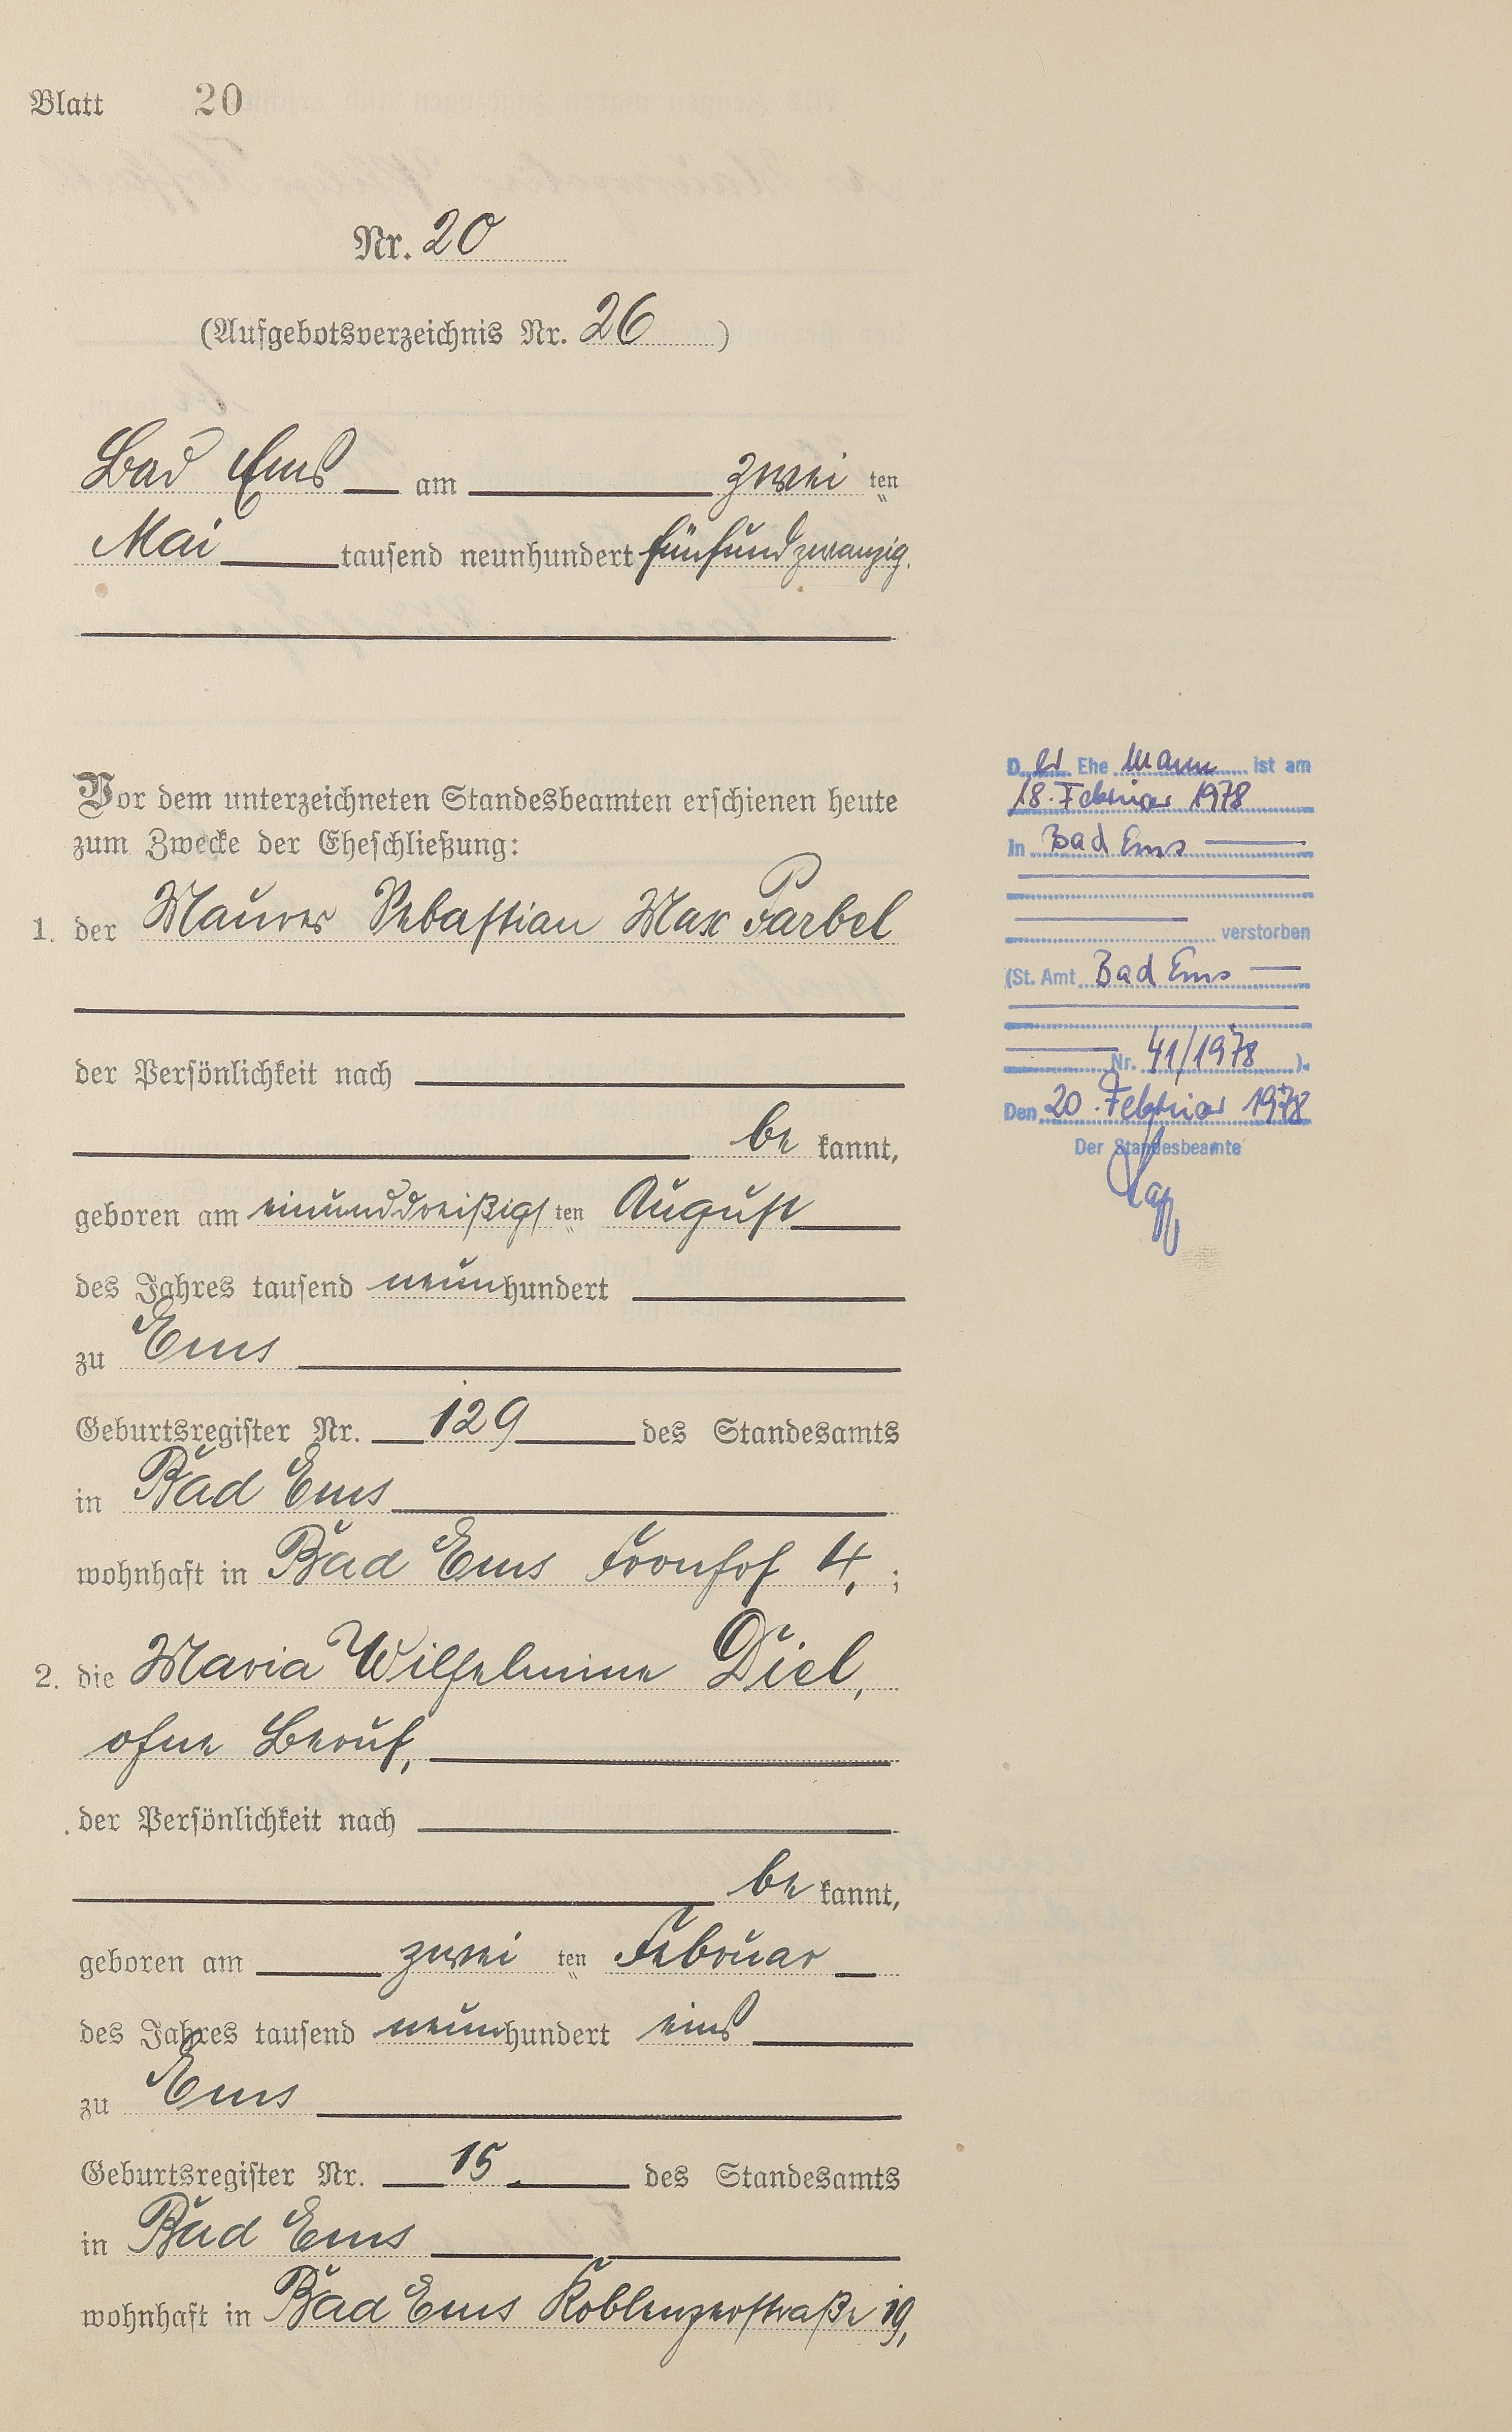 Blatt 20
Nr. 20
(Aufgebotsverzeichnis Nr. 26 )
Bad Ems am zwei ten
Mai tausend neunhundert fünfundzwanzig.
Vor dem unterzeichneten Standesbeamten erschienen heute
zum Zwecke der Eheschließung:
1. der Maurer Sebastian Max Farbel
der Persönlichkeit nach
be kannt,
geboren am einunddreißigs ten August
des Jahres tausend neun hundert
zu Ems
Geburtsregister Nr. 129 des Standesamts
in Bad Ems
wohnhaft in Bad Ems Fronhof 4, ;
2. die Maria Wilhelmine Diel,
ohne Beruf,
der Persönlichkeit nach
be kannt,
geboren am zwei ten Februar
des Jahres tausend neun hundert eins
zu Ems
Geburtsregister Nr. 15. des Standesamts
in Bad Ems
wohnhaft in Bad Ems Koblenzerstraße 19,
D er Ehe mann ist am
18. Februar 1978
in Bad Ems
verstorben
(St. Amt Bad Ems
Nr. 41/1978 ).
Den 20. Februar 1978
Der Standesbeamte